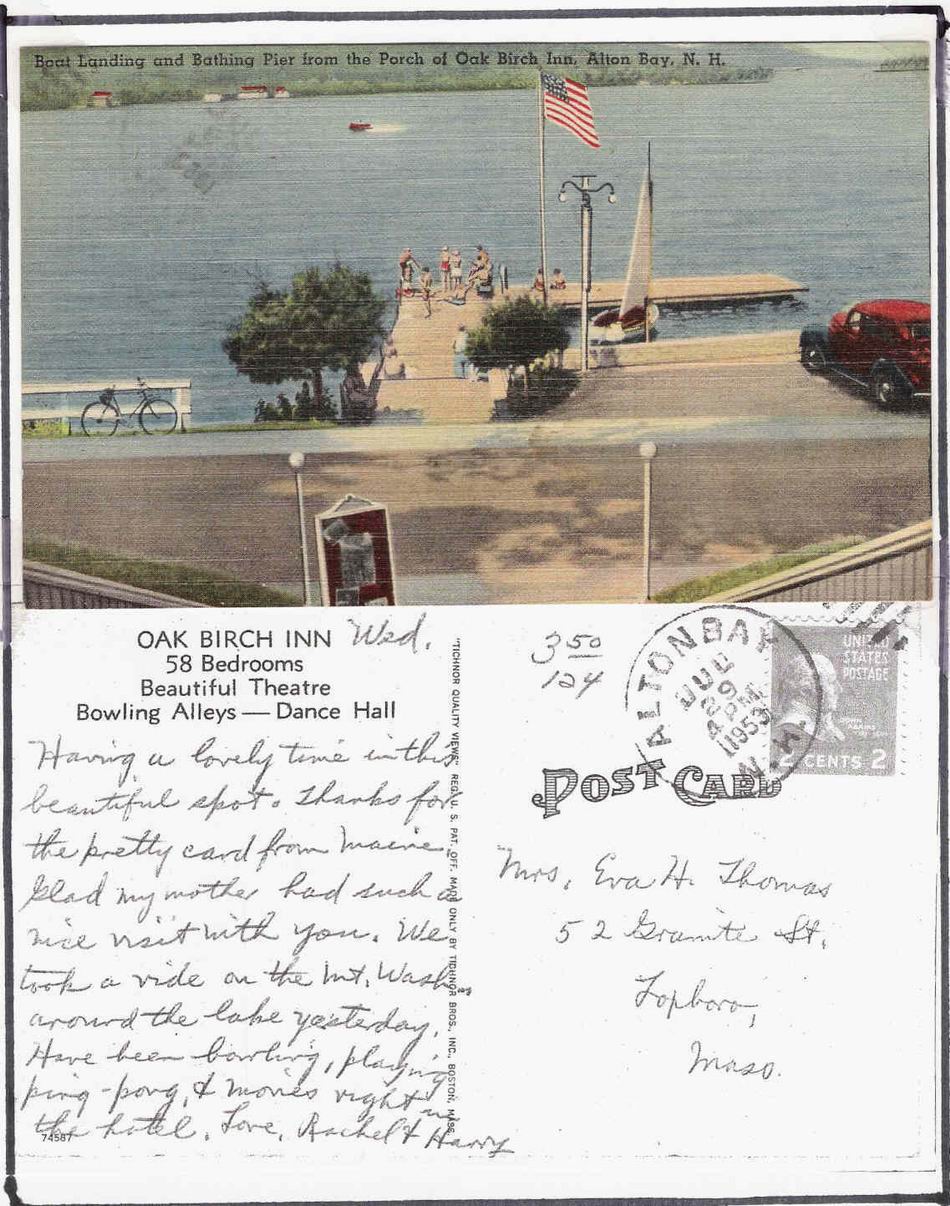 Boat Landing and Bathing Pier from the Porch of Oak Birch Inn, Alton Bay, N. H.
OAK BIRCH INN
58 Bedrooms
Beautiful Theatre
Bowling Alleys — Dance Hall
Wed.
Having a lovely time in this
beautiful spot. Thanks for
the pretty card from Maine.
Glad my mother had such a
nice visit with you. We
took a ride on the Mt. Wash.
around the lake yesterday.
Have been bowling, playing
ping-pong, & movies right in
the hotel. Love, Rachel & Harry
74587
"TICHNOR QUALITY VIEWS" REG. U. S. PAT. OFF. MADE ONLY BY TICHNOR BROS., INC., BOSTON, MASS.
3 50
124
ALTON BAY
JUL
29
4 PM
1953
N.H.
UNITED
STATES
POSTAGE
JOHN
ADAMS
2 CENTS 2
POST CARD
Mrs. Eva H. Thomas
52 Granite St.
Foxboro,
Mass.